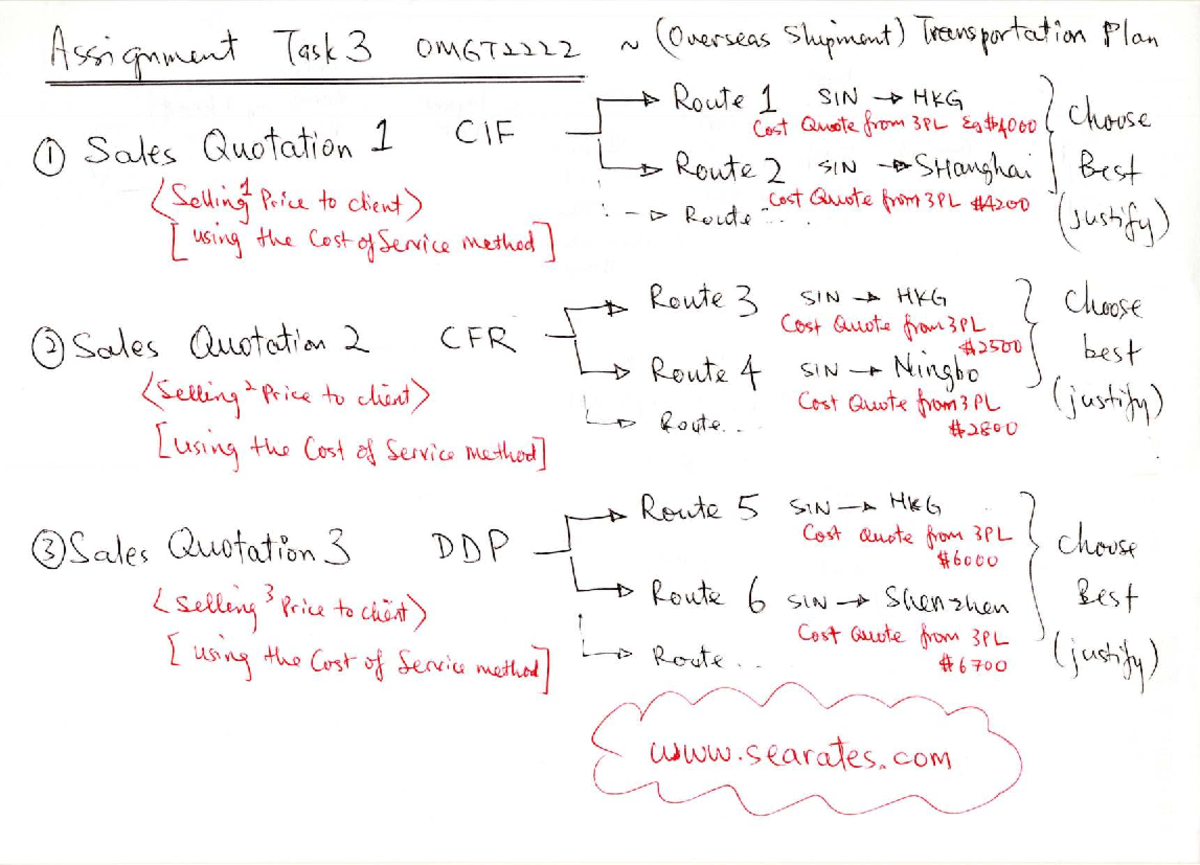 Assignment Task 3 OMGT2222 ~ (Overseas Shipment) Transportation Plan
① Sales Quotation 1 CIF
<Selling 1 Price to client>
[using the Cost of Service method]
Route 1 SIN → HKG
Cost Quote from 3PL Eg $4000
Route 2 SIN → SHanghai
Cost Quote from 3PL $4200
Route ...
Choose
Best
(justify)
② Sales Quotation 2 CFR
<Selling 2 Price to client>
[using the Cost of Service method]
Route 3 SIN → HKG
Cost Quote from 3PL
$2500
Route 4 SIN → Ningbo
Cost Quote from 3PL
$2800
Route...
Choose
best
(justify)
③ Sales Quotation 3 DDP
<Selling 3 Price to client>
[using the Cost of Service method]
Route 5 SIN → HKG
Cost Quote from 3PL
$6000
Route 6 SIN → Shenzhen
Cost Quote from 3PL
$6700
Route...
Choose
Best
(justify)
www.searates.com